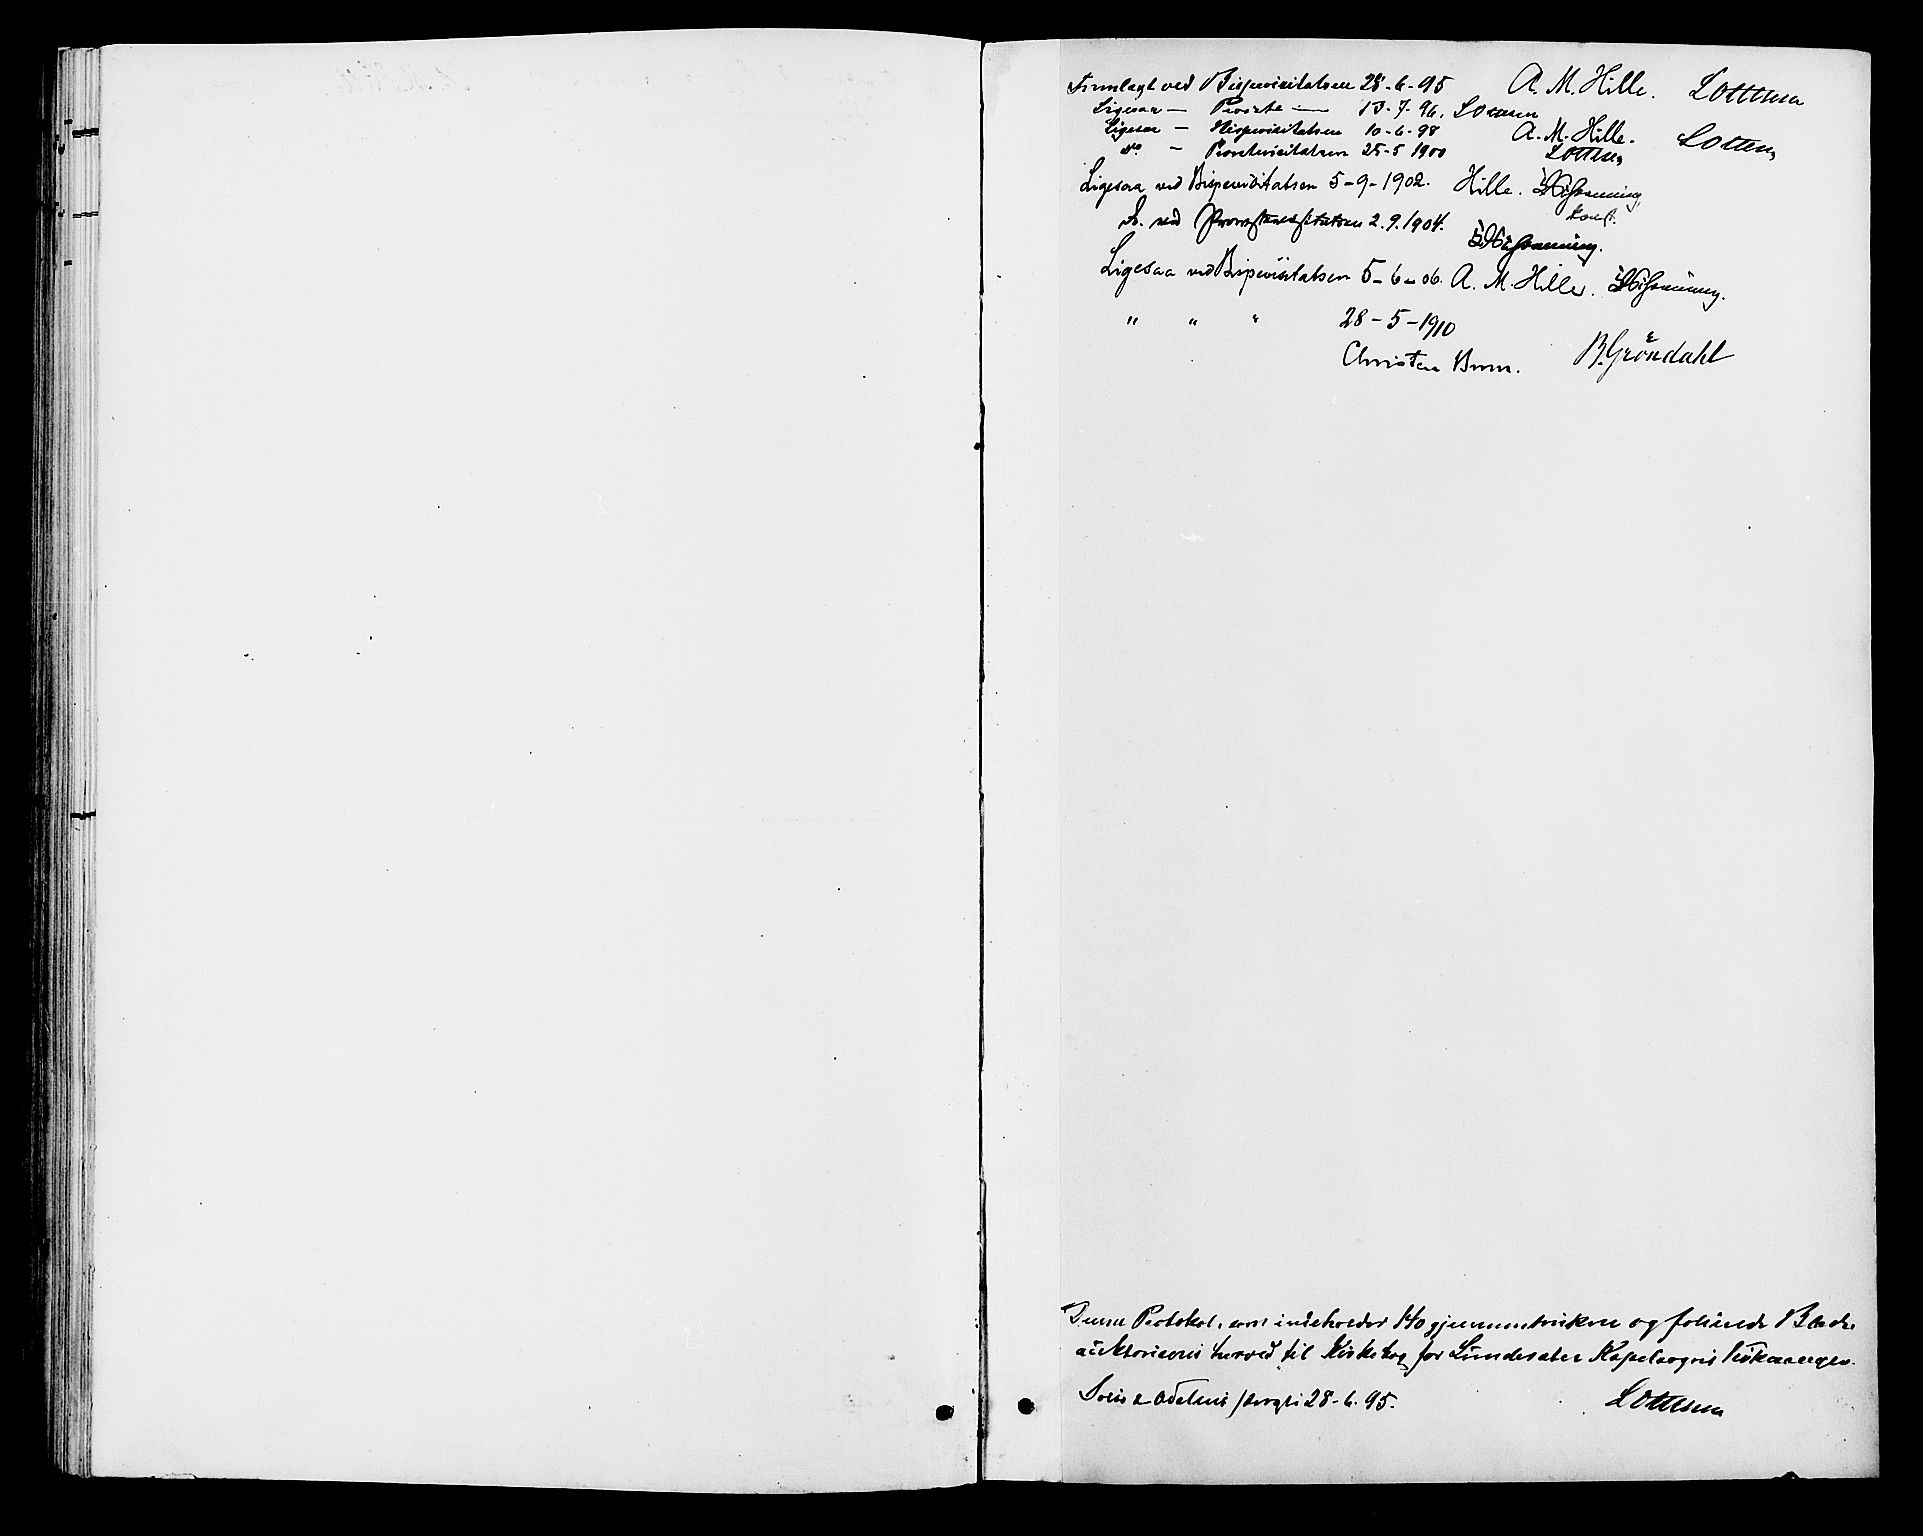 Fremlagt ved Bispevisitatsen 28-6-95 A. M. Hille. L Ottesen
Ligesaa — Provste — 13-7-96. L Ottesen
Ligesaa — Bispevisitatsen 10-6-98 A. M. Hille. L Ottesen
do — Provstevisitatsen 25-5 1900 L Ottesen
Ligesaa ved Bispevisitatsen 5-9-1902. Hille.
konst.
D. ved Provstevisitatsen 2.9.1904.
Ligesaa ved Bispevisitatsen 5-6-06. A. M. Hille.
" " " 28-5-1910
Christen Brun. B. Gröndahl
Denne Protokol, som indeholder gjennemtrukne og folierede Blade
auktoriseres herved til Kirkebog for Kapelsogns
28-6.95. L Ottesen